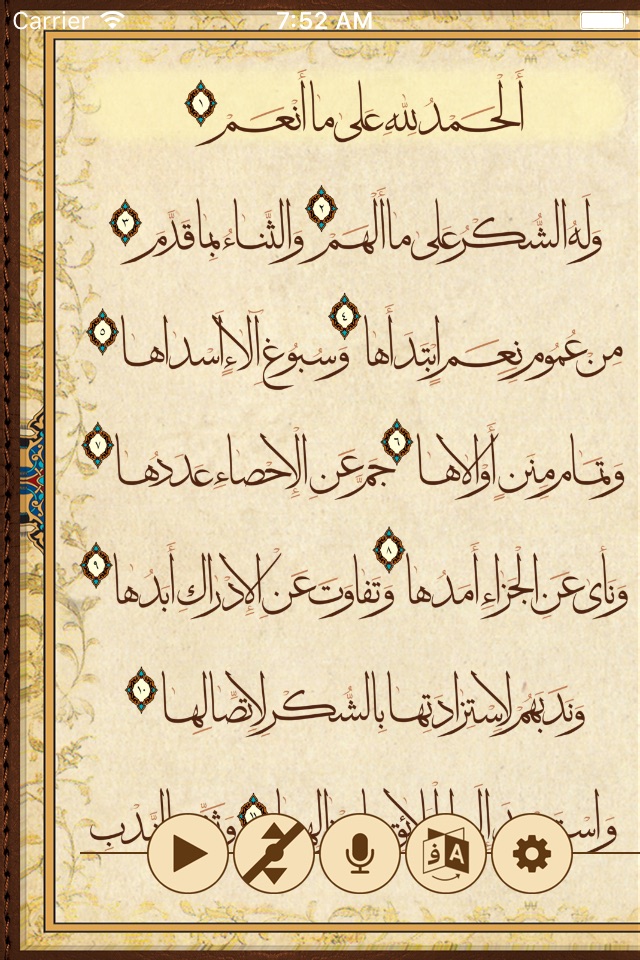 Carrier 7:52 AM
أَلحَمدُ لِلّٰهِ عَلى ما أَنعَمَ ١
وَلَهُ الشُّكرُ عَلى ما أَلهَمَ ٢ وَالثَّناءُ بِما قَدَّمَ ٣
مِن عُمُومِ نِعَمٍ ابتَدَأَها ٤ وَسُبُوغِ آلاءٍ أَسداها ٥
وَتَمامِ مِنَنٍ أَوْلاها ٦ جَمَّ عَنِ الإِحصاءِ عَدَدُها ٧
وَنَأى عَنِ الجَزاءِ أَمَدُها ٨ وَتَفاوَتَ عَنِ الإِدراكِ أَبَدُها ٩
وَنَدَبَهُم لِاستِزادَتِها بِالشُّكرِ لِاتِّصالِها ١٠
ف A